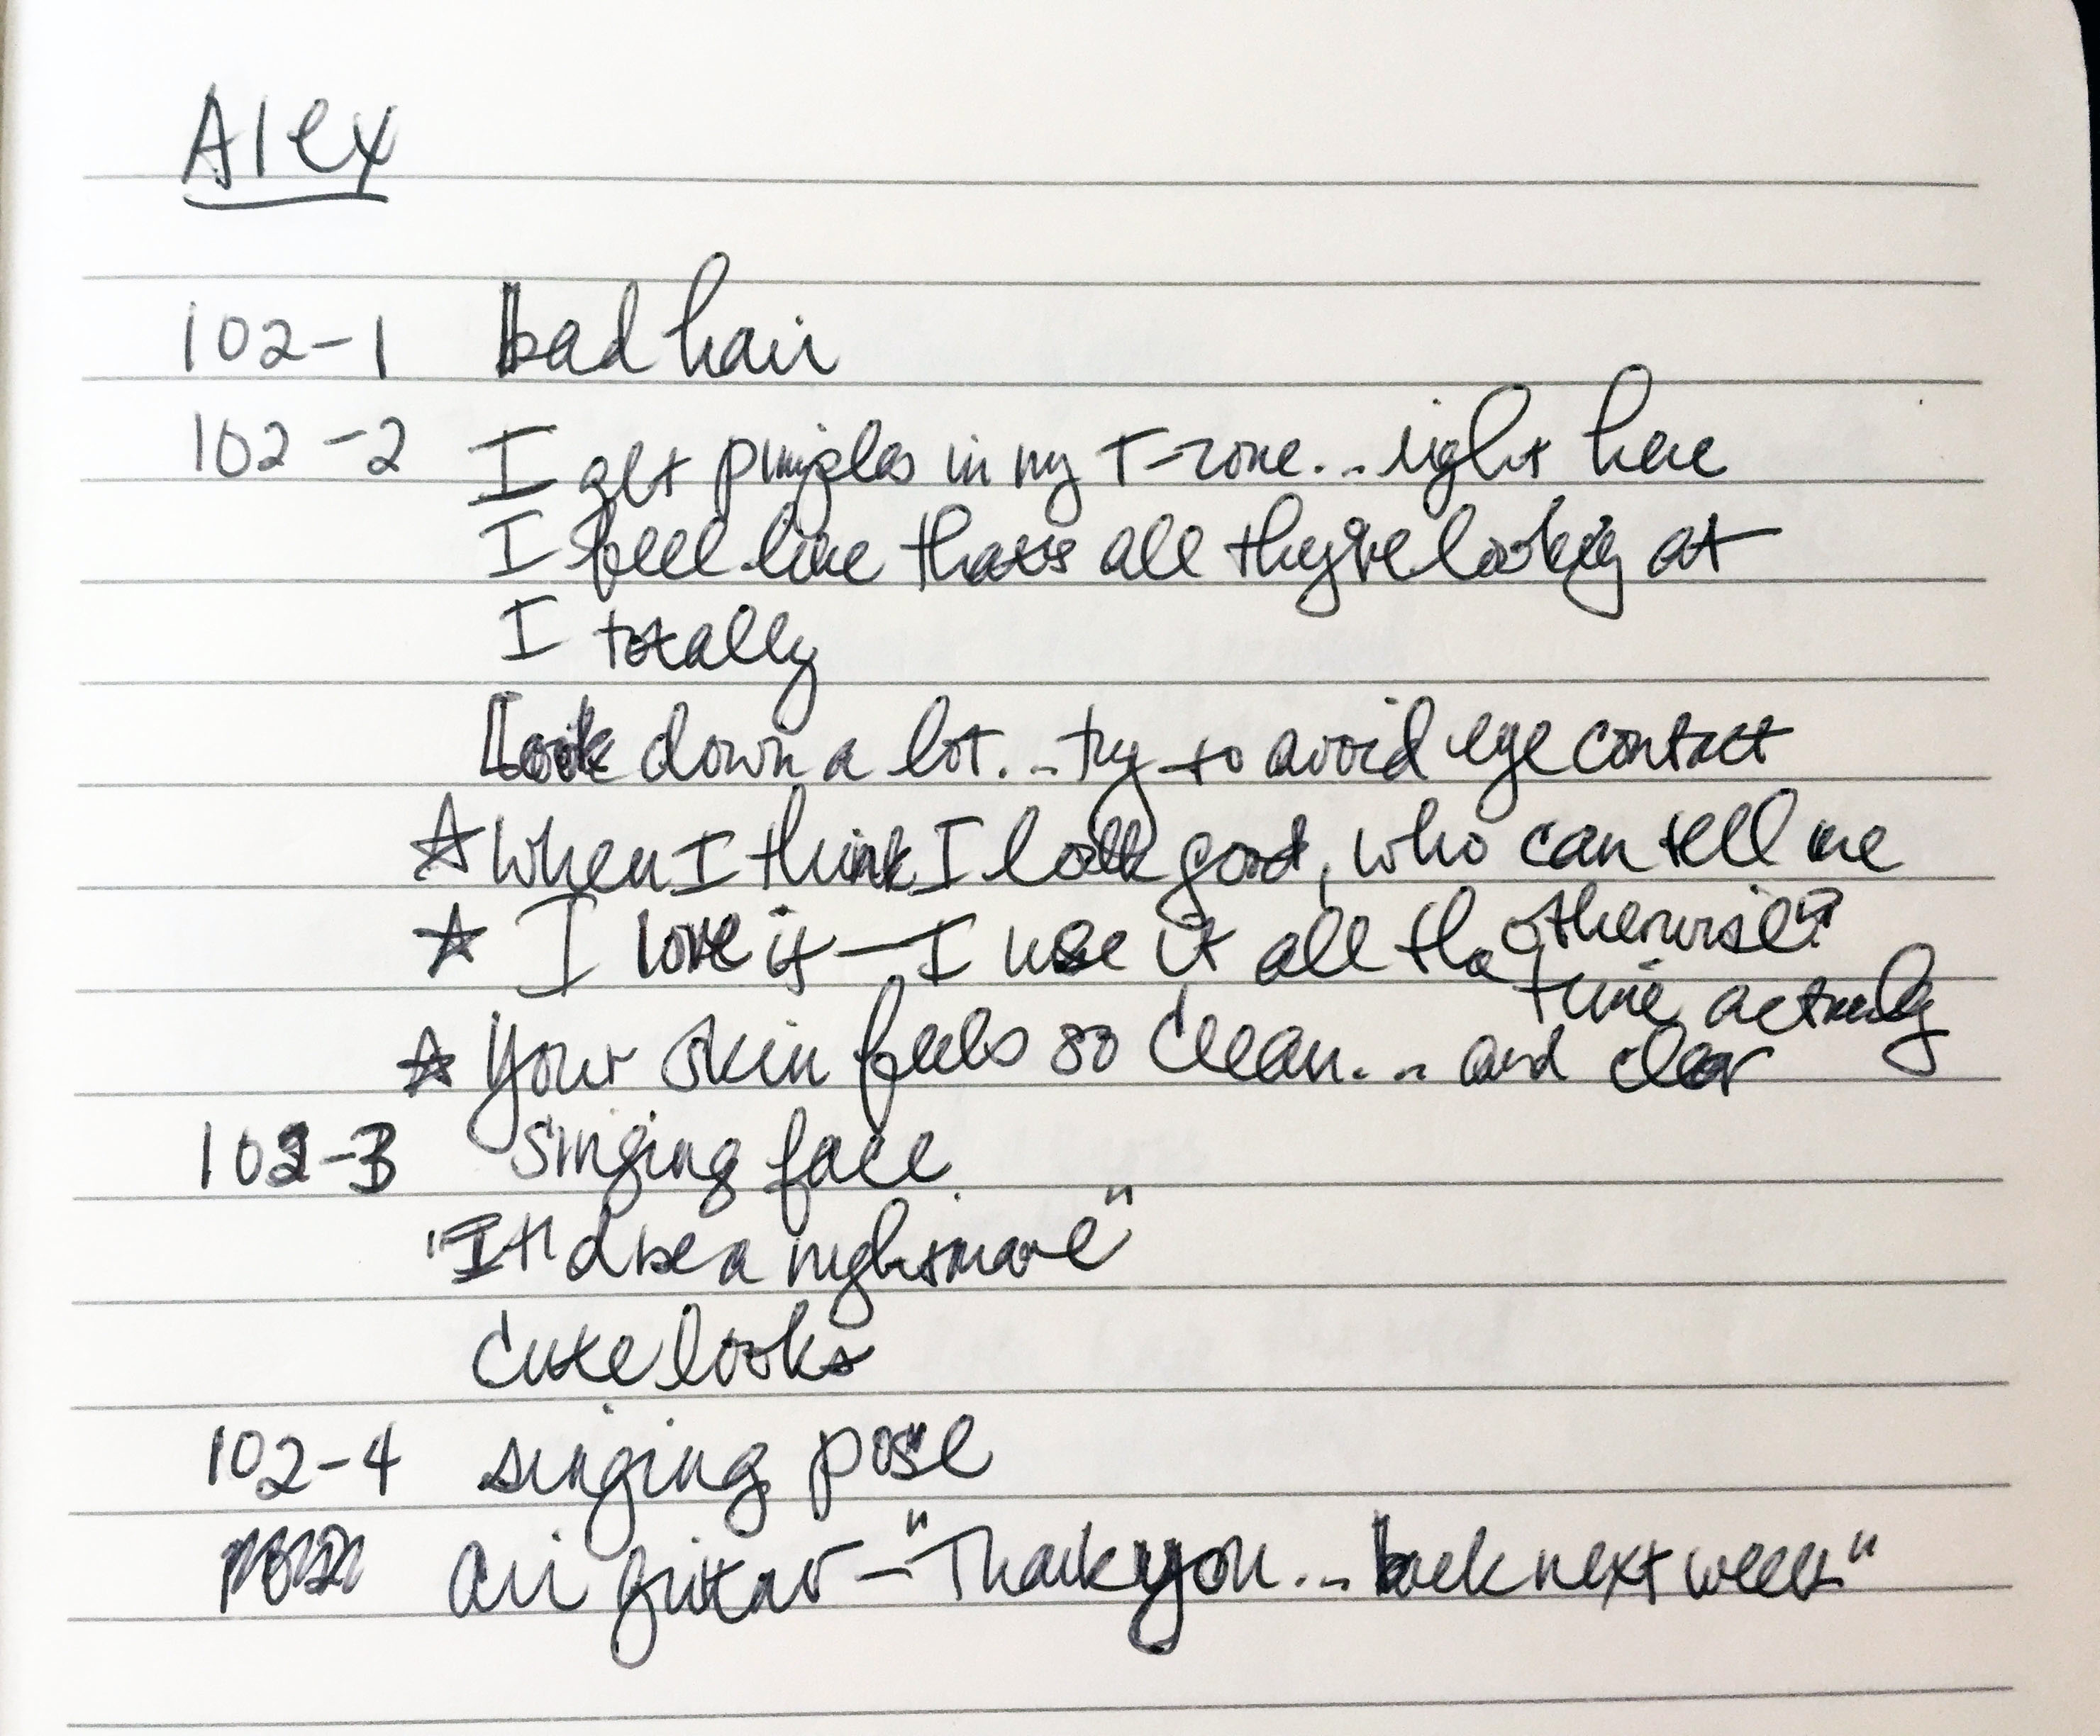 Alex
102-1 bad hair
102-2 I get pimples in my T-zone... right here
I feel like that's all they're looking at
I totally
Look down a lot... try to avoid eye contact
☆ When I think I look good, who can tell me
otherwise?
☆ I love it — I use it all the
time actually
☆ Your skin feels so clean... and clear
102-3 singing face
"It'd be a nightmare"
Cute looks
102-4 singing pose
air guitar — "Thank you... back next week"